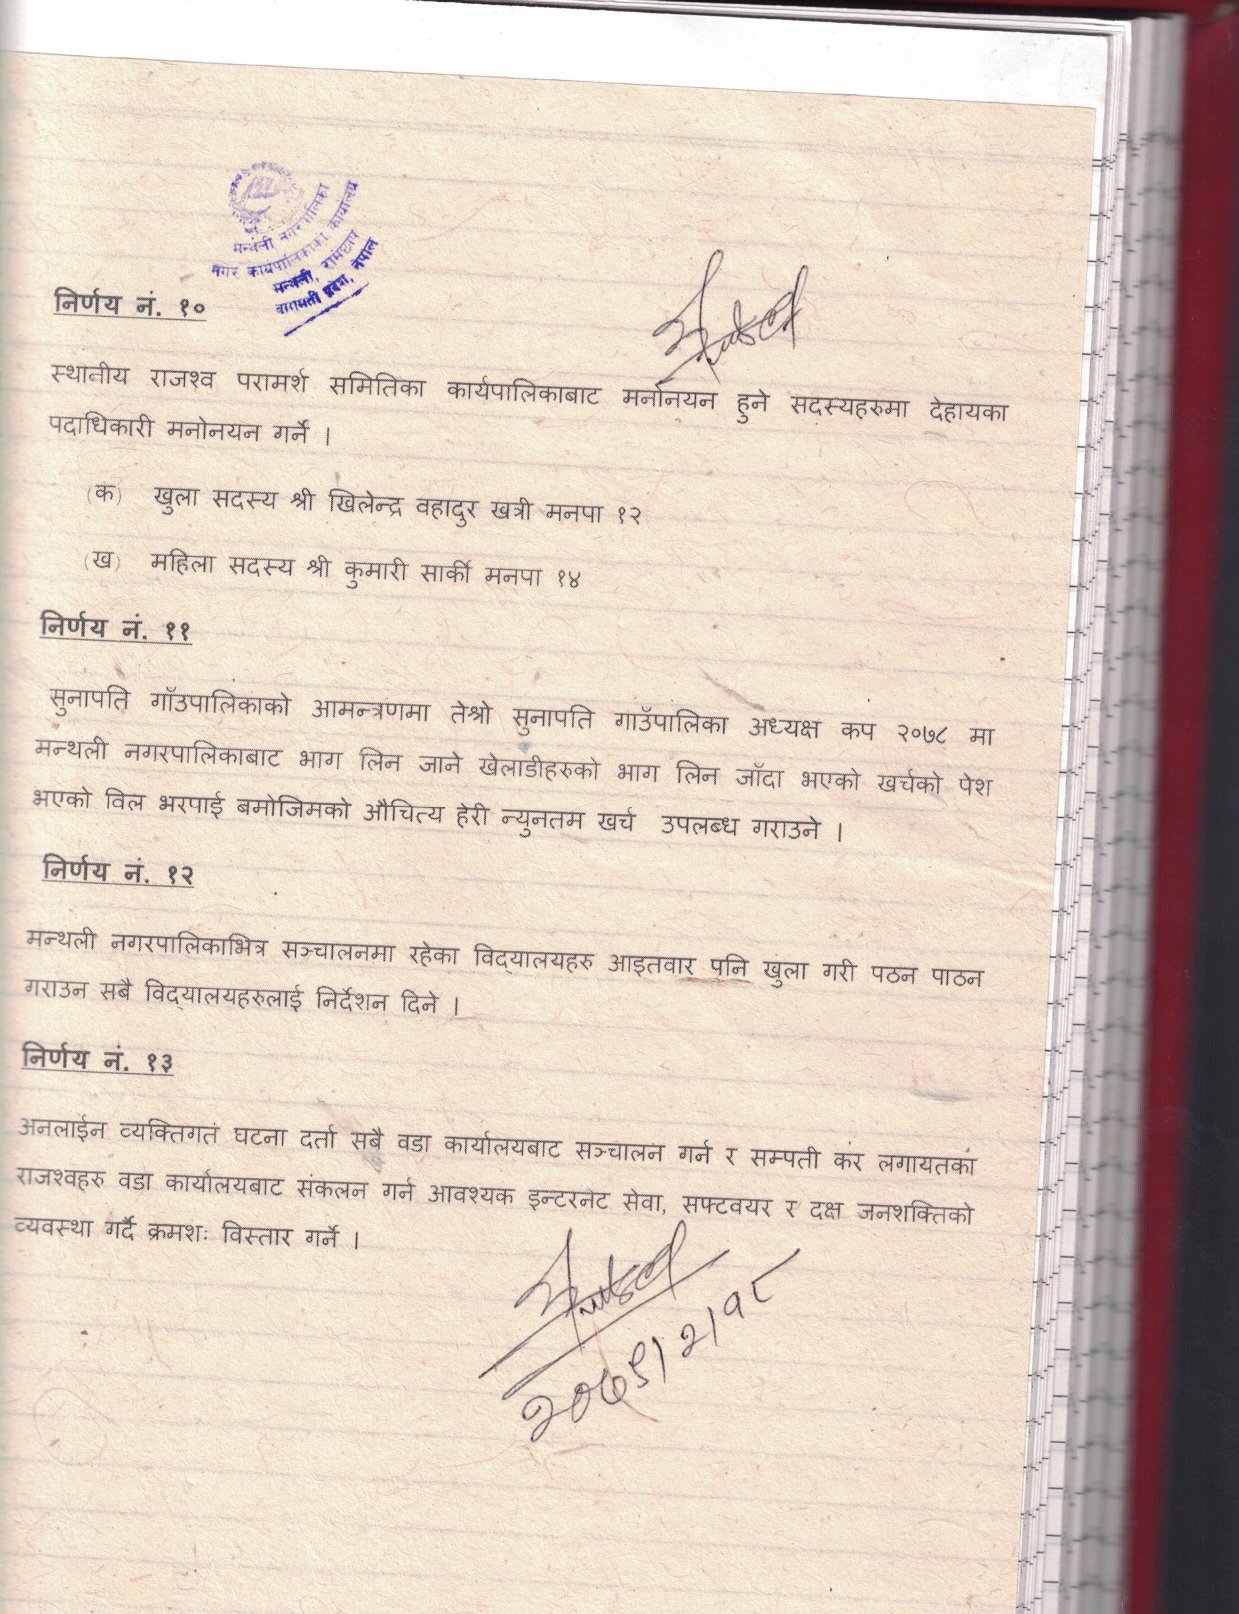 मन्थली नगरपालिका
नगर कार्यपालिकाको कार्यालय
मन्थली, रामेछाप
बागमती प्रदेश, नेपाल
निर्णय नं. १०
स्थानीय राजश्व परामर्श समितिका कार्यपालिकाबाट मनोनयन हुने सदस्यहरुमा देहायका
पदाधिकारी मनोनयन गर्ने ।
(क) खुला सदस्य श्री खिलेन्द्र वहादुर खत्री मनपा १२
(ख) महिला सदस्य श्री कुमारी सार्की मनपा १४
निर्णय नं. ११
सुनापति गाँउपालिकाको आमन्त्रणमा तेश्रो सुनापति गाउँपालिका अध्यक्ष कप २०७८ मा
मन्थली नगरपालिकाबाट भाग लिन जाने खेलाडीहरुको भाग लिन जाँदा भएको खर्चको पेश
भएको विल भरपाई बमोजिमको औचित्य हेरी न्युनतम खर्च उपलब्ध गराउने ।
निर्णय नं. १२
मन्थली नगरपालिकाभित्र सञ्चालनमा रहेका विद्यालयहरु आइतवार पनि खुला गरी पठन पाठन
गराउन सबै विद्यालयहरुलाई निर्देशन दिने ।
निर्णय नं. १३
अनलाईन व्यक्तिगत घटना दर्ता सबै वडा कार्यालयबाट सञ्चालन गर्न र सम्पती कर लगायतका
राजश्वहरु वडा कार्यालयबाट संकलन गर्न आवश्यक इन्टरनेट सेवा, सफ्टवयर र दक्ष जनशक्तिको
व्यवस्था गर्दै क्रमशः विस्तार गर्ने ।
२०७९।२।१८